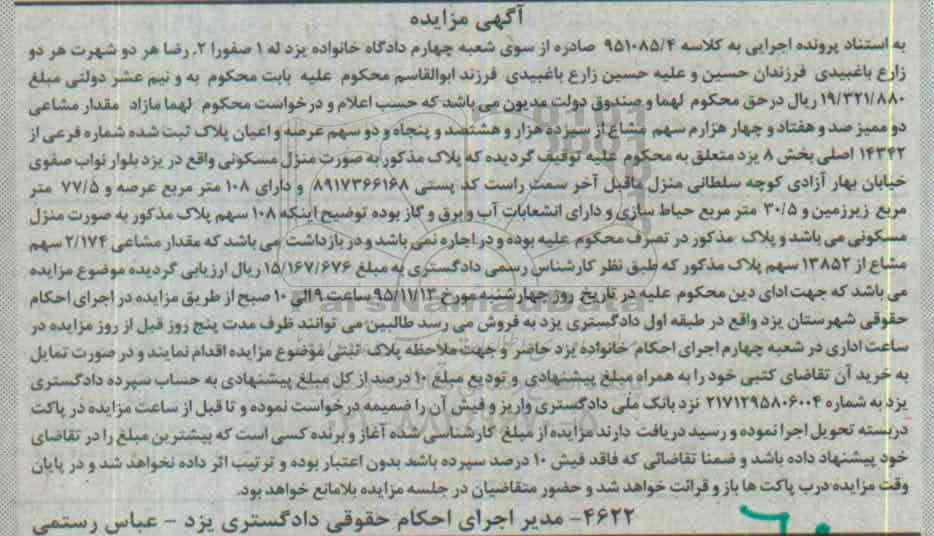 آگهی مزایده
به استناد پرونده اجرایی به کلاسه ۹۵۱۰۸۵/۴ صادره از سوی شعبه چهارم دادگاه خانواده یزد له ۱ صفورا ۲. رضا هر دو شهرت هر دو
زارع باغبیدی فرزندان حسین و علیه حسین زارع باغبیدی فرزند ابوالقاسم محکوم علیه بابت محکوم به و نیم عشر دولتی مبلغ
۱۹/۳۲۱/۸۸۰ ریال درحق محکوم لهما و صندوق دولت مدیون می باشد که حسب اعلام و درخواست محکوم لهما مازاد مقدار مشاعی
دو ممیز صد و هفتاد و چهار هزارم سهم مشاع از سیزده هزار و هشتصد و پنجاه و دو سهم عرصه و اعیان پلاک ثبت شده شماره فرعی از
۱۴۳۴۲ اصلی بخش ۸ یزد متعلق به محکوم علیه توقیف گردیده که پلاک مذکور به صورت منزل مسکونی واقع در یزد بلوار نواب صفوی
خیابان بهار آزادی کوچه سلطانی منزل ماقبل آخر سمت راست کد پستی ۸۹۱۷۳۶۶۱۶۸ و دارای ۱۰۸ متر مربع عرصه و ۷۷/۵ متر
مربع زیرزمین و ۳۰/۵ متر مربع حیاط سازی و دارای انشعابات آب و برق و گاز بوده توضیح اینکه ۱۰۸ سهم پلاک مذکور به صورت منزل
مسکونی می باشد و پلاک مذکور در تصرف محکوم علیه بوده و در اجاره نمی باشد و در بازداشت می باشد که مقدار مشاعی ۲/۱۷۴ سهم
مشاع از ۱۳۸۵۲ سهم پلاک مذکور که طبق نظر کارشناس رسمی دادگستری به مبلغ ۱۵/۱۶۷/۶۷۶ ریال ارزیابی گردیده موضوع مزایده
می باشد که جهت ادای دین محکوم علیه در تاریخ روز چهارشنبه مورخ ۹۵/۱۱/۱۳ ساعت ۹ الی ۱۰ صبح از طریق مزایده در اجرای احکام
حقوقی شهرستان یزد واقع در طبقه اول دادگستری یزد به فروش می رسد طالبین می توانند ظرف مدت پنج روز قبل از روز مزایده در
ساعت اداری در شعبه چهارم اجرای احکام خانواده یزد حاضر و جهت ملاحظه پلاک ثبتی موضوع مزایده اقدام نمایند و در صورت تمایل
به خرید آن تقاضای کتبی خود را به همراه مبلغ پیشنهادی و تودیع مبلغ ۱۰ درصد از کل مبلغ پیشنهادی به حساب سپرده دادگستری
یزد به شماره ۲۱۷۱۲۹۵۸۰۶۰۰۴ نزد بانک ملی دادگستری واریز و فیش آن را ضمیمه درخواست نموده و تا قبل از ساعت مزایده در پاکت
دربسته تحویل اجرا نموده و رسید دریافت دارند مزایده از مبلغ کارشناسی شده آغاز و برنده کسی است که بیشترین مبلغ را در تقاضای
خود پیشنهاد داده باشد و ضمنا تقاضائی که فاقد فیش ۱۰ درصد سپرده باشد بدون اعتبار بوده و ترتیب اثر داده نخواهد شد و در پایان
وقت مزایده درب پاکت ها باز و قرائت خواهد شد و حضور متقاضیان در جلسه مزایده بلامانع خواهد بود.
۴۶۲۲- مدیر اجرای احکام حقوقی دادگستری یزد - عباس رستمی
ParsNamadData